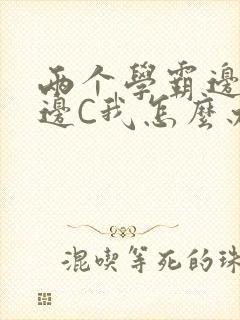 两个學霸邊
邊C我怎麼
混喫等死的珠